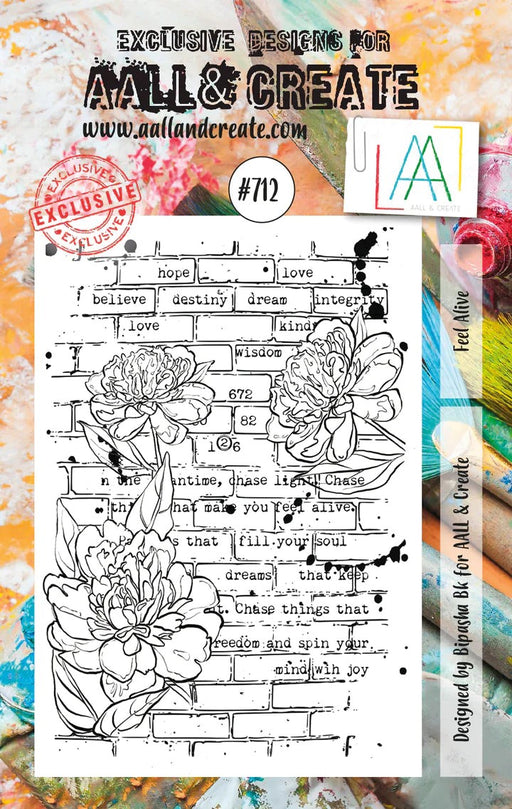 EXCLUSIVE DESIGNS FOR
AALL & CREATE
www.aallandcreate.com
EXCLUSIVE
EXCLUSIVE
EXCLUSIVE
#712
AA
AALL & CREATE
hope love
believe destiny dream integrity
love kind
wisdom
672
82
126
n the antime, chase light! Chase
thi hat make you feel alive.
s that fill your soul
dreams that keep
t. Chase things that
reedom and spin your
mind wih joy
Feel Alive
Designed by Bipasha Bk for AALL & Create